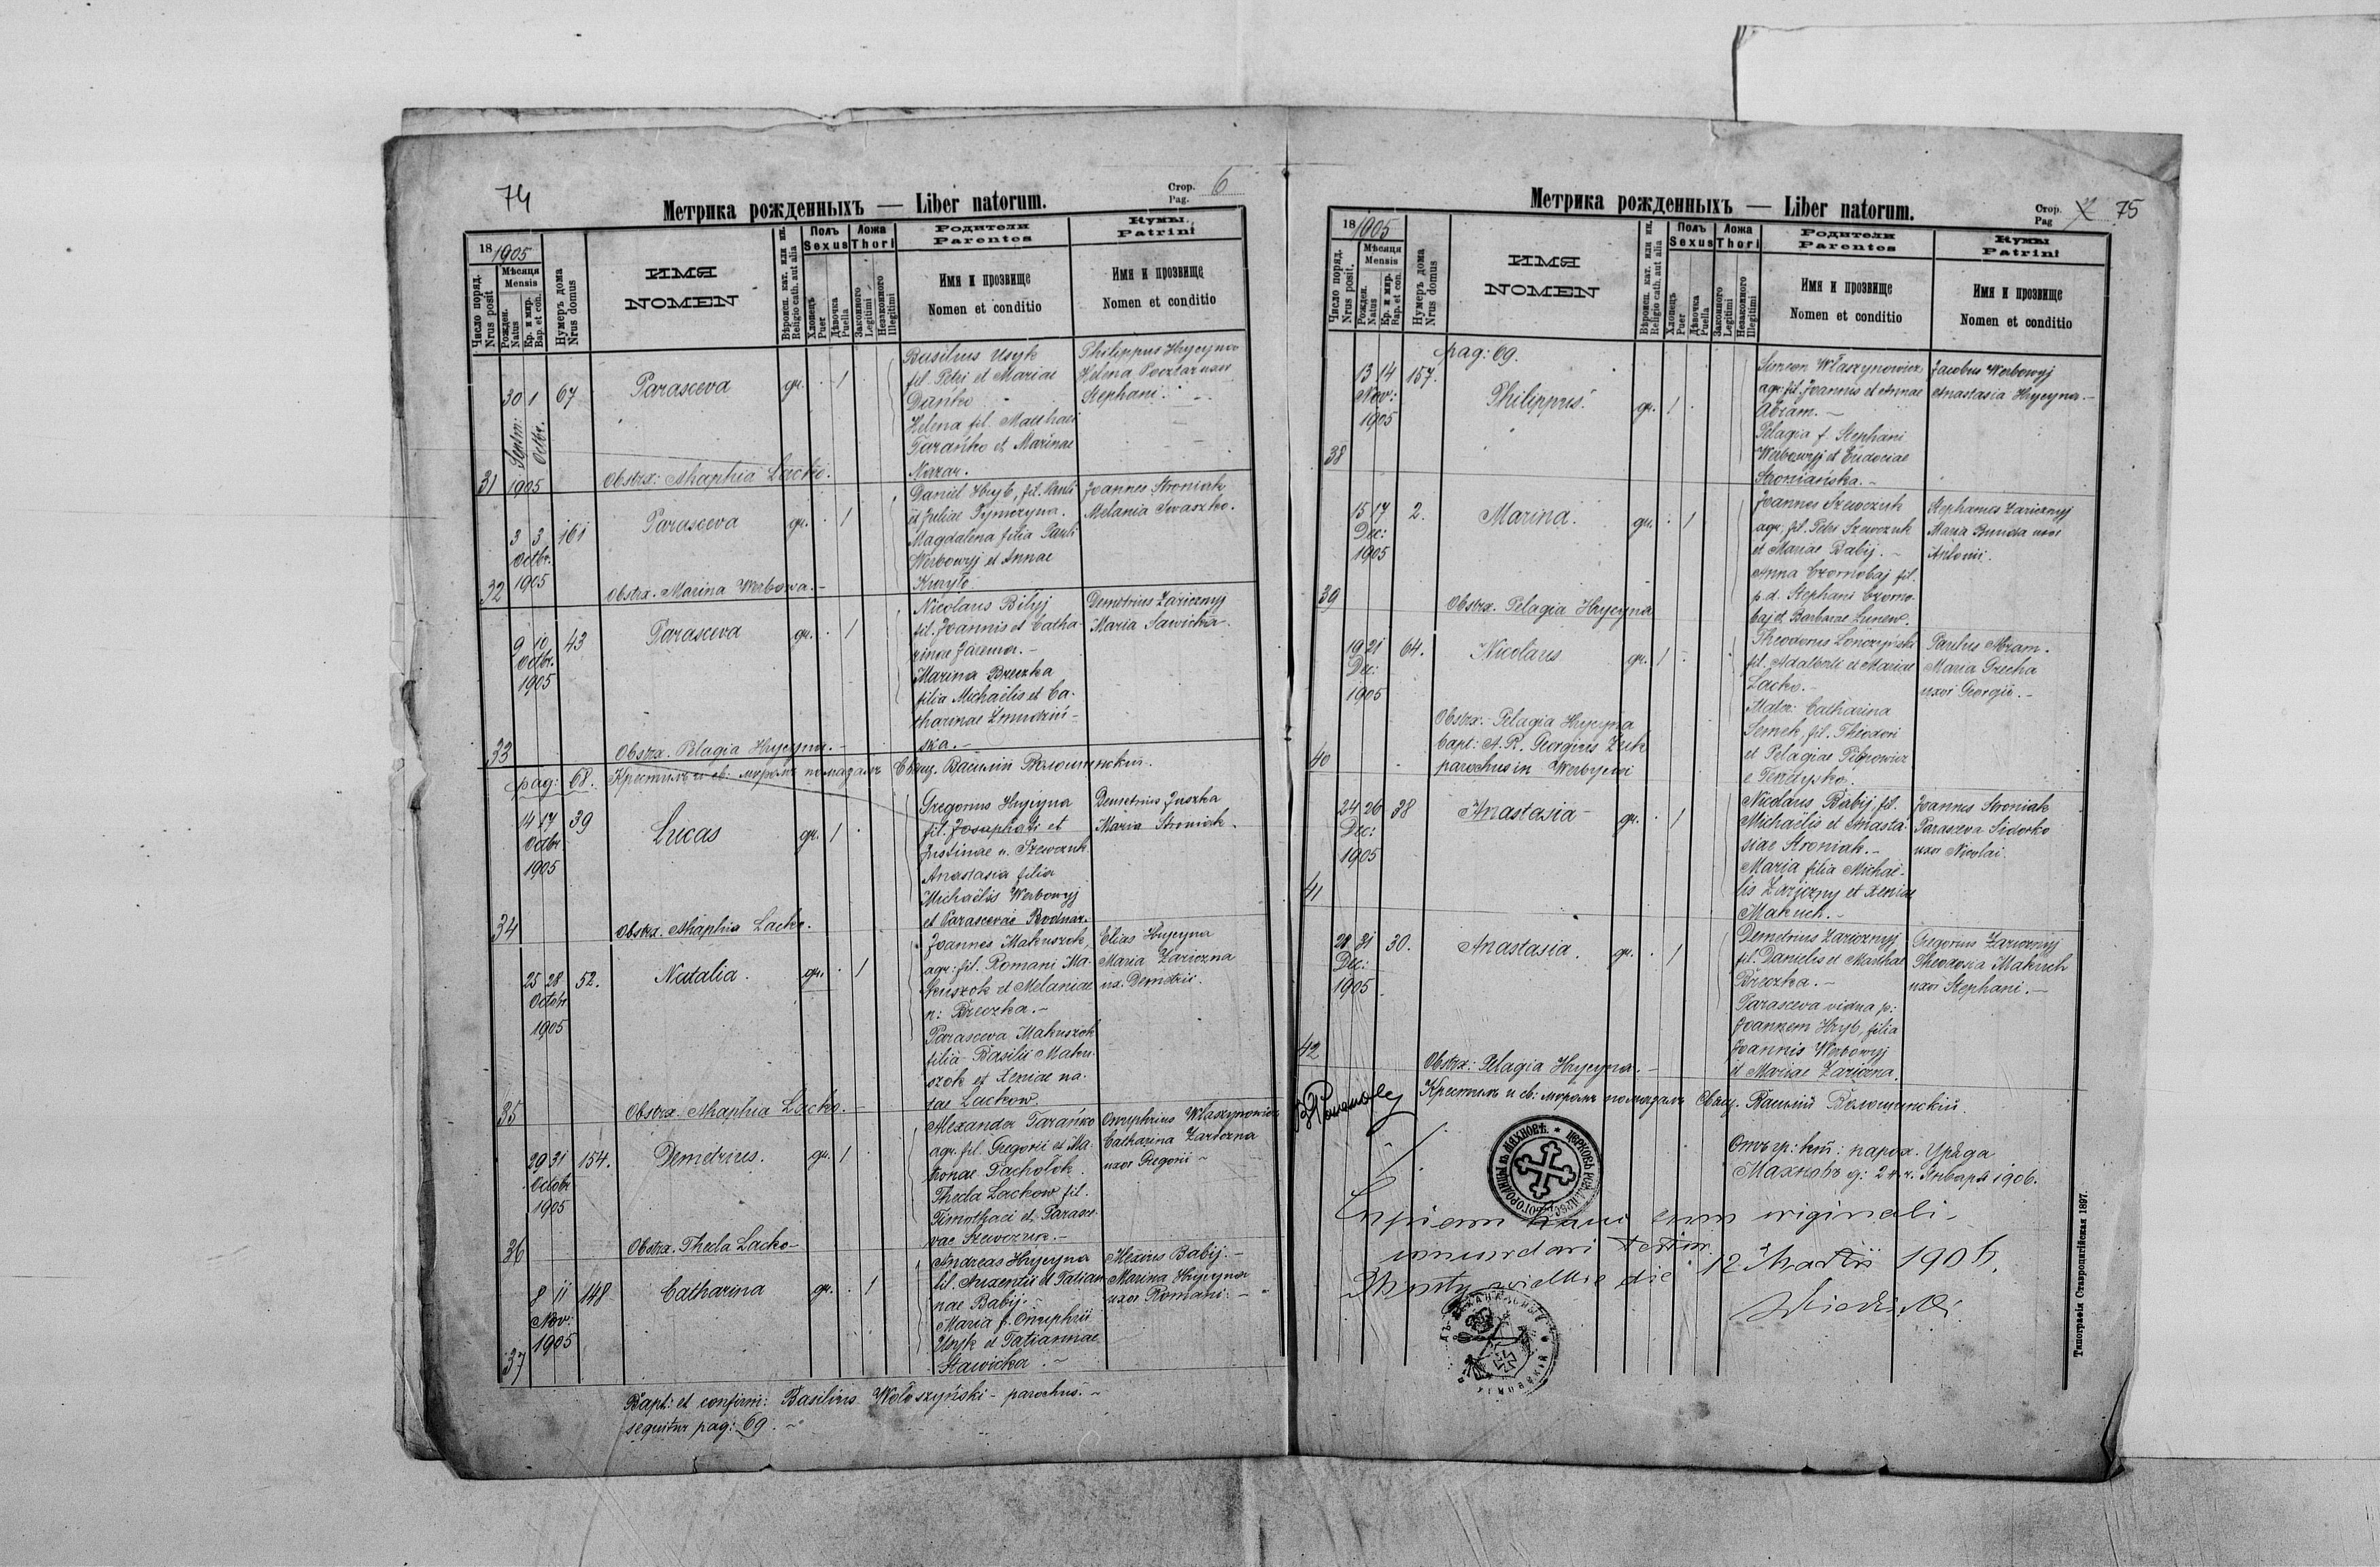 74
Метрика рожденныхъ — Liber natorum.
Стор. 6
Pag.
18 1905
Число поряд.
Nrus posit
Мѣсяця
Mensis
Рожден.
Natus
Кр. и мир.
Bap. et con.
Нумеръ дома
Nrus domus
ИМЯ
NOMEN
Вѣроисп. кат. или ин.
Religio cath. aut alia
Полъ
Sexus
Хлопецъ
Puer
Дѣвочка
Puella
Ложа
Thori
Законного
Legitimi
Незаконного
Illegitimi
Родители
Parentes
Имя и прозвище
Nomen et conditio
Кумы
Patrini
Имя и прозвище
Nomen et conditio
31
30 1 67
Septm: Octbr.
1905
Parasceva
gr. . 1 .
Basilius Usyk
fil. Petri et Mariae
Danko
Helena fil. Matthaei
Tarańko et Marinae
Nazar.
Philippus Hrycyna
Helena Pocztar uxor
Stephani.
Obstrx: Ahaphia Lacko.
32
3 3 161
Octbr.
1905
Parasceva
gr. . 1
Daniel Hryb, fil. Pauli
et Juliae Tymczyna.
Magdalena filia Pauli
Werbowyj et Annae
Kuryło
Joannes Stroniak
Melania Iwaszko.
Obstrx. Marina Werbowa.-
33
9 10 43
Octbr.
1905
Parasceva
gr. . 1
Nicolaus Bilyj
fil. Joannis et Catha
rinae Jarema.-
Marina Breczka
filia Michaëlis et Ca-
tharinae Żmudziń-
ska.-
Demetrius Zaricznyj
Maria Sawicka.
Obstrx. Pelagia Hrycyna.-
pag: 68. Крестилъ и св: мѵромъ помазалъ Свящ. Василій Волошинскій.
34
14 17 39
Octbr
1905
Lucas
gr. 1 .
Gregorius Hrycyna
fil. Josaphati et
Justinae n. Szewczuk
Anastasia filia
Michaëlis Werbowyj
et Parascevae Bodnar.
Demetrius Juszka
Maria Stroniak.
Obstrx. Ahaphia Lacko.
35
25 28 52.
Octobr
1905
Natalia.
gr. . 1
Joannes Makuszok,
agr: fil. Romani Ma-
kuszok et Melaniae
n: Breczka.-
Parasceva Makuszok
filia Basilii Maku-
szok et Xeniae na-
tae Lackow.
Elias Hrycyna
Maria Zariczna
ux. Demetrii.
Obstrx. Ahaphia Lacko.-
36
29 31 154.
Octobr
1905
Demetrius.
gr. 1 .
Alexander Tarańko
agr. fil. Gregorii et Ma-
tronae Pachołok.
Thecla Lackow fil.
Timothaei et Parasce-
vae Szewczuk.-
Onuphrius Własynowicz
Catharina Zariczna
uxor Gregorii -
Obstrx. Thecla Lacko-
37
8 11 148
Nov:
1905
Catharina
gr. . 1
Andreas Hrycyna
fil. Auxentii et Tatian
nae Babij.-
Maria f. Onuphrii
Usyk et Tatiannae
Stawicka.-
Alexius Babij.-
Marina Hrycyna
uxor Romani.-
Bapt: et confirm: Basilius Wołoszyński - parochus.-
sequitur pag: 69.
Метрика рожденныхъ — Liber natorum.
Стор. 75
Pag
18 1905
Число поряд.
Nrus posit.
Мѣсяця
Mensis
Рожден.
Natus
Кр. и мир.
Bap. et con.
Нумеръ дома
Nrus domus
ИМЯ
NOMEN
Вѣроисп. кат. или ин.
Religio cath. aut alia
Полъ
Sexus
Хлопецъ
Puer
Дѣвочка
Puella
Ложа
Thori
Законного
Legitimi
Незаконного
Illegitimi
Родители
Parentes
Имя и прозвище
Nomen et conditio
Кумы
Patrini
Имя и прозвище
Nomen et conditio
pag: 69.
38
13 14 157.
Nov:
1905
Philippus.
gr. 1 .
Simeon Własynowicz
agr: fil. Joannis et Annae
Abram.-
Pelagia f. Stephani
Werbowyj et Eudociae
Stroniańska.-
Jacobus Werbowyj
Anastasia Hrycyna.-
39
15 17 2.
Dec:
1905
Marina.
gr. . 1
Joannes Szewczuk
agr: fil. Petri Szewczuk
et Mariae Babij.-
Anna Czornobaj fil.
p. d. Stephani Czorno-
baj et Barbarae Lunew.
Stephanus Zaricznyj
Maria uxor
Antonii.
Obstrx. Pelagia Hrycyna
40
19 21 64.
Dec:
1905
Nicolaus
gr. 1 -
Theodorus Lonczyński
fil. Adalberti et Mariae
Lacko.-
Mater: Catharina
Semek, fil. Theodori
et Pelagiae
e
Paulus Abram.
Maria Grecka
uxor Georgii.-
Obstrx: Pelagia Hrycyna
bapt: A. R. Georgius Żuk
parochus in Werbycia
41
24 26 38
Dec:
1905
Anastasia-
gr. . 1
Nicolaus Babij, fil.
Michaëlis et Anasta-
siae Stroniak.-
Maria filia Michaë-
lis Zariczny et Xeniae
Makuch.-
Joannes Stroniak
Parasceva Sidorko
uxor Nicolai.
42
28 31 30.
Dec:
1905
Anastasia.
gr. . 1
Demetrius Zaricznyj
fil. Danielis et Marthae
Breczka.-
Parasceva vidua p:
Joannem Hryb, filia
Joannis Werbowyj
et Mariae Zariczna.
Gregorius Zaricznyj
Theodosia Makuch
uxor Stephani.-
Obstrx: Pelagia Hrycyna.-
Крестилъ и св: мѵромъ помазалъ Свящ. Василій Волошинскій.
Отъ гр: кат: парох. Уряда
Махновъ д: 24. Январа 1906.
Copiam hanc cum originali
concordari testor.
die 12 Martii 1906.
Типографія Ставропигійская 1897.